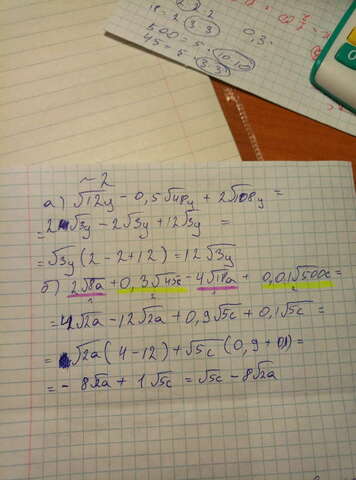 18 = 2 · 3 · 3
500 = 5 · 10 · 10
45 = 5 · 3 · 3
0,3 ·
~ 2
а) √12y - 0,5√48y + 2√108y =
= 2√3y - 2√3y + 12√3y =
= √3y (2 - 2 + 12) = 12√3y
б) 2√8a + 0,3√45c - 4√18a + 0,01√500c =
= 4√2a - 12√2a + 0,9√5c + 0,1√5c =
= √2a (4 - 12) + √5c (0,9 + 0,1) =
= - 8√2a + 1√5c = √5c - 8√2a